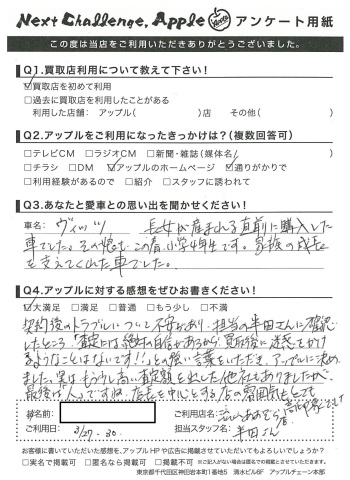 Next Challenge, Apple アンケート用紙
この度は当店をご利用いただきありがとうございました。
Q1.買取店利用について教えて下さい!
☑買取店を初めて利用
□過去に買取店を利用したことがある
利用した店舗: アップル( )店 その他( )
Q2.アップルをご利用になったきっかけは?(複数回答可)
□テレビCM □ラジオCM □新聞・雑誌(媒体名 )
□チラシ □DM ☑アップルのホームページ ☑通りがかりで
□利用経験があるので □紹介 □スタッフに誘われて
Q3.あなたと愛車との思い出を聞かせください!
車名: ヴィッツ 長女が産まれる直前に購入した
車でした。その娘もこの春小学4年生です。家族の成長
を支えてくれた車でした。
Q4.アップルに対する感想をぜひお書きください!
☑大満足 □満足 □普通 □もう少し □不満
契約後のトラブルについて不安があり、担当の半田さんに確認
したところ「査定には絶対の自信があるから、買取後に迷惑をかけ
るようなことはないです!」との強い言葉をいただき、アップルに決め
ました。実は、もう少し高い査定額を出した他社もありましたが、
最後は「人」ですね。店長を中心とする店の雰囲気もとても
お名前:
ご利用店名:
ご利用日: 3/27.30.
担当スタッフ名: 半田さん
お客様に書いていただいた感想を、アップルHPや広告に掲載させていただいてもよろしいでしょうか?
□実名で掲載可 □匿名なら掲載可 □掲載不可 ※ご記入がない場合は匿名での掲載とさせていただきます。
東京都千代田区神田岩本町1番地5 清水ビル6F アップルチェーン本部